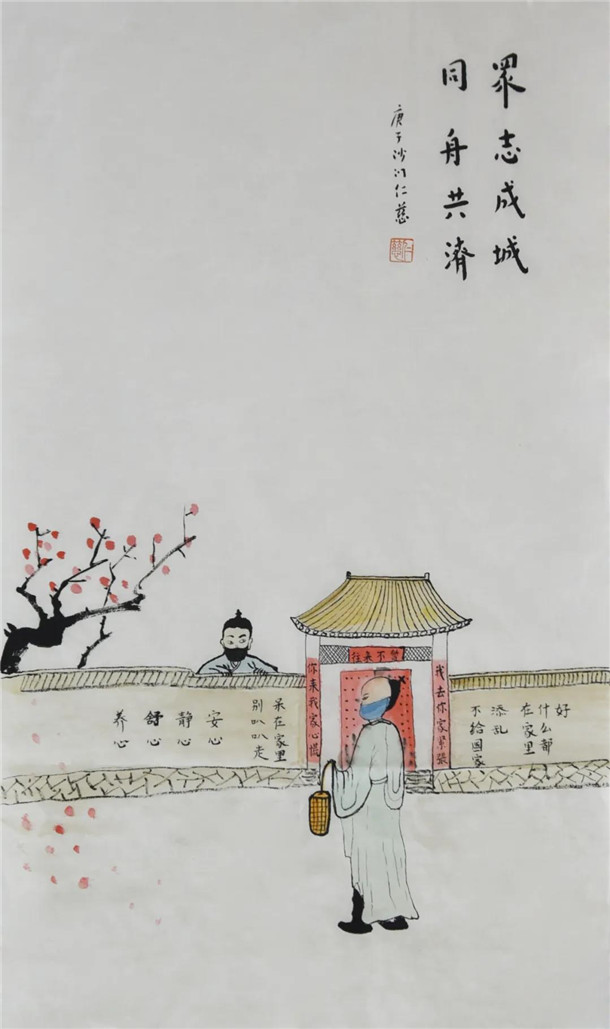 眾志成城
同舟共濟
庚子沙门仁慈
暂不来往
我去你家紧张
你来我家心慌
好
什么都
在家里
添乱
不给国家
呆在家里
别叭叭走
安心
静心
舒心
养心